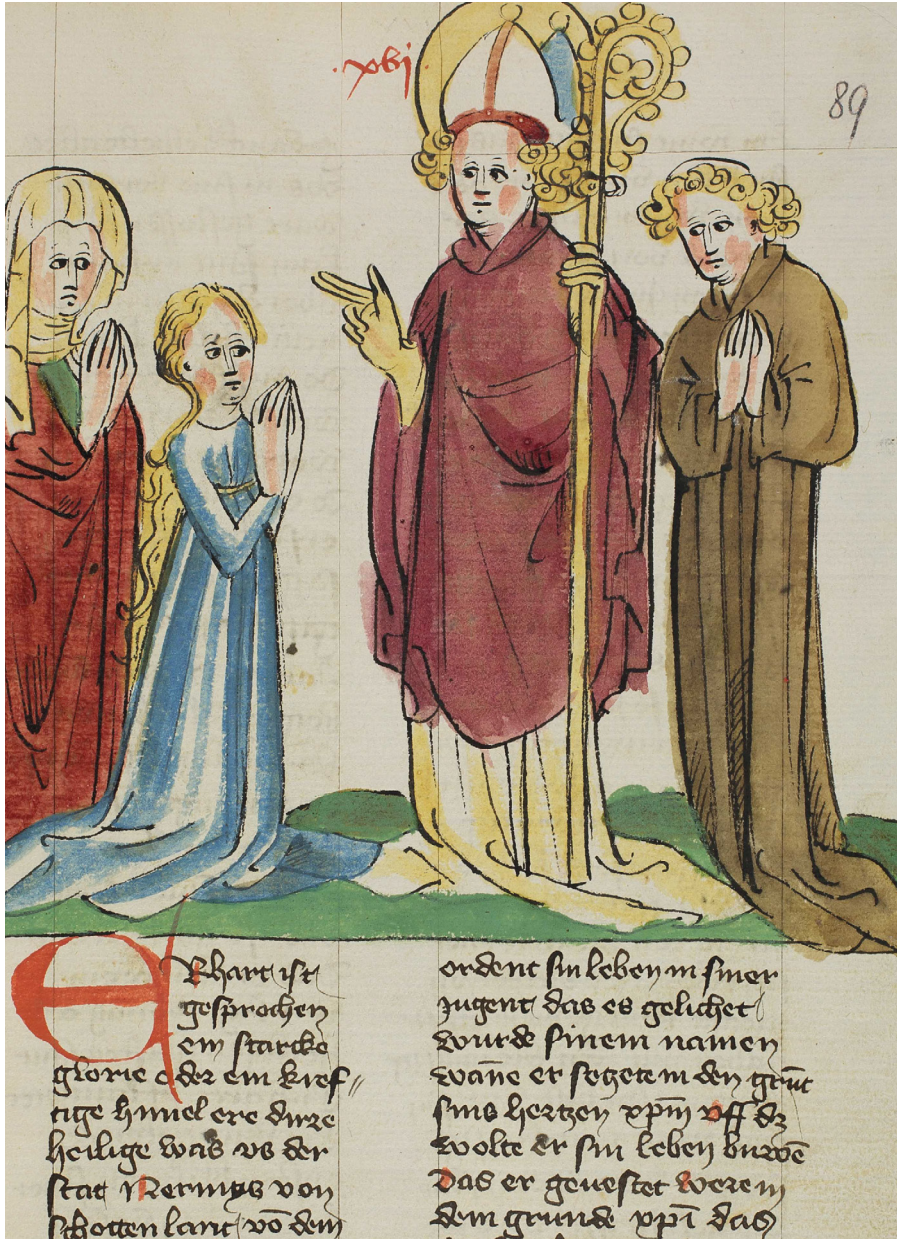 .xvj
89
ERhart ist
gesprochen
ein starcke
glorie oder ein kref⸗
tige himel ere dirre
heilige was vs der
stat Nerniys von
schotten lant vō dem
ordent sin leben in siner
jugent das es gelichet
wurde sinem namen
wāne er setzete in den grūt
sins hertzen xp̄m vff dz
wolte er sin leben buwē
Das er geuestet were in
dem grunde xp̄i das